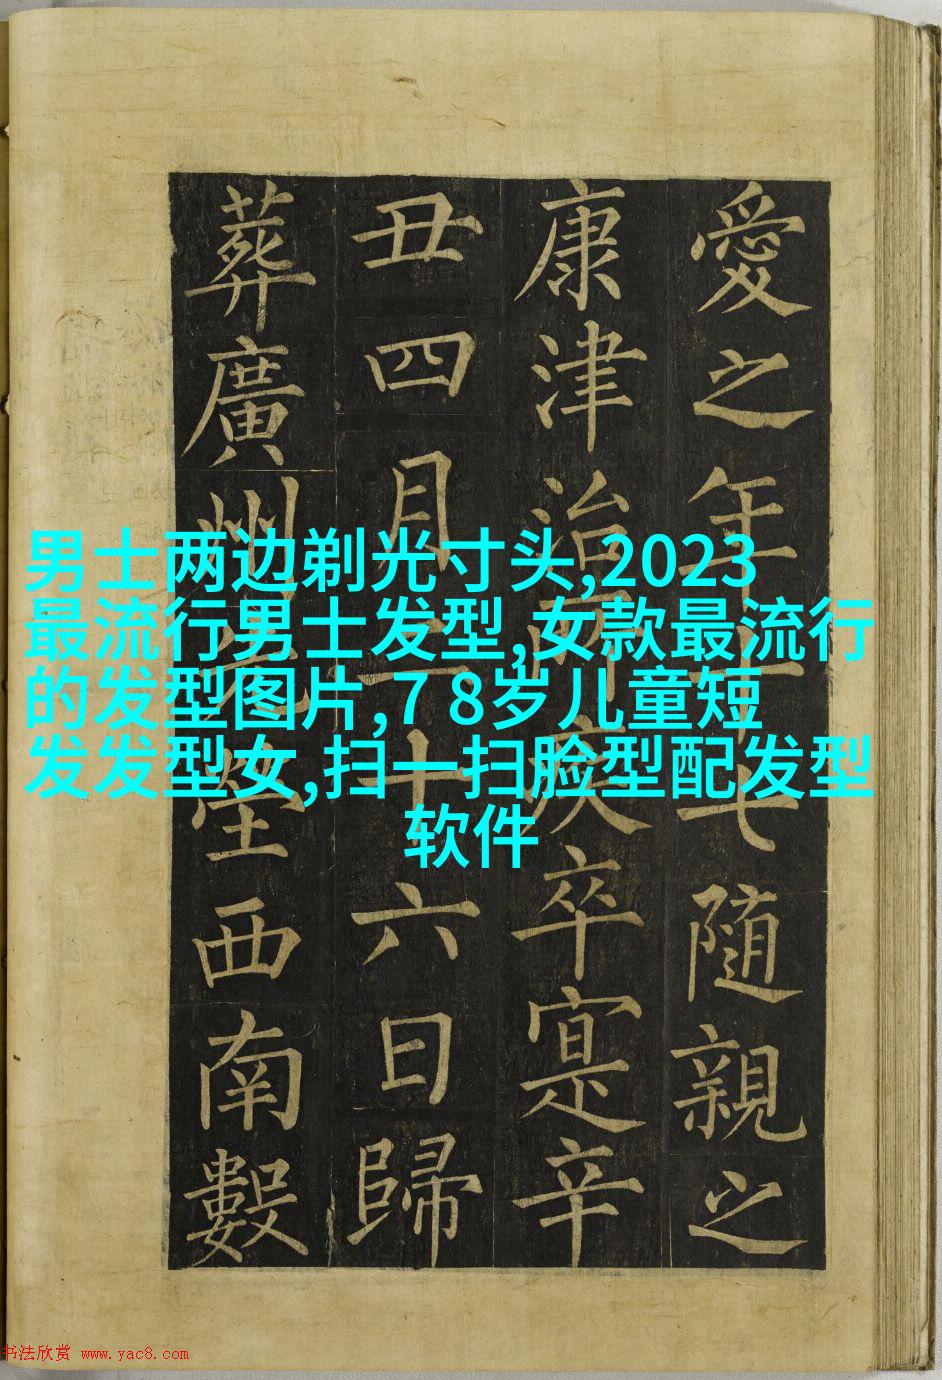 男士两边剃光寸头,2023
最流行男士发型,女款最流行
的发型图片,7 8岁儿童短
发发型女,扫一扫脸型配发型
软件
愛之年十七隨親之
康津治疾卒寔辛
丑四月二十六日歸
葬廣州西南數
书法欣赏 www.yac8.com